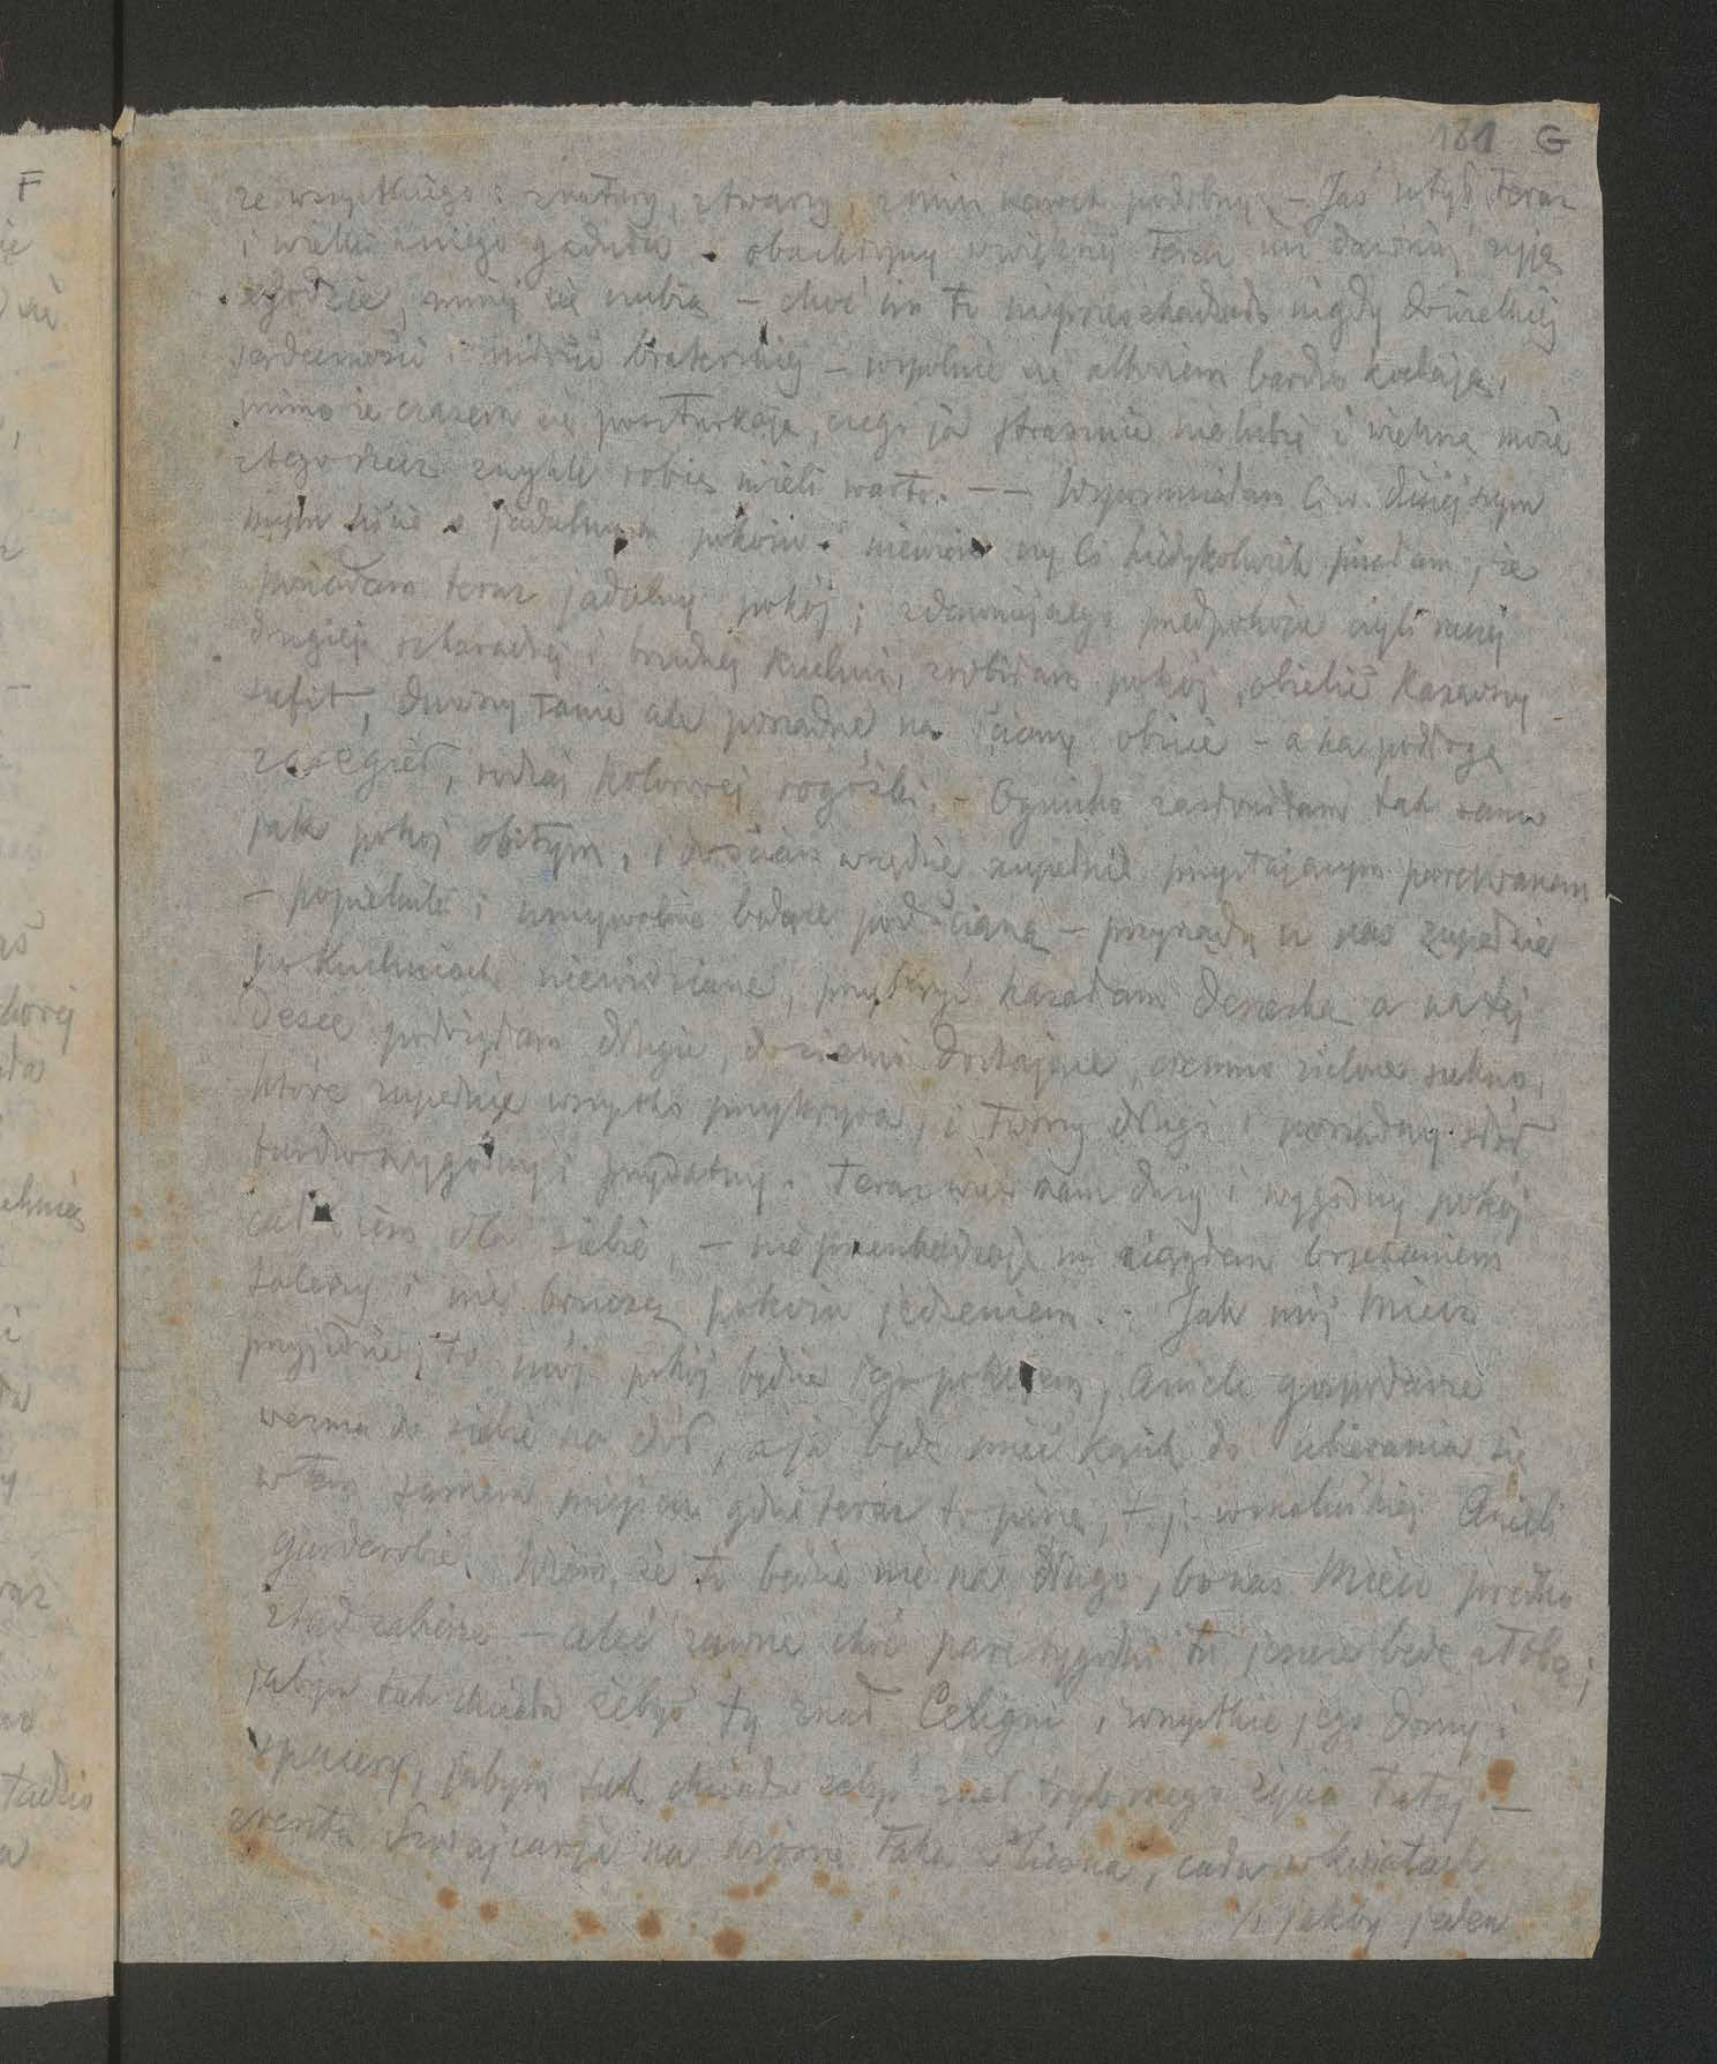 181 G
ze wszystkiego: z natury, z twarzy, z min nawet podobny. – Jaś utył teraz
i wielki z niego gaduła. obachwyny w większej teraz niż dawniej żyją
zgodzie, mniej się czubią – choć im to nieprzeszkadzało nigdy do wielkiej
serdeczności i miłości braterskiej – wspólnie się albowiem bardzo kochają,
mimo że czasem się poszturkają, czego ja strasznie nielubię i wielkną może
z tego rzecz zwykle robię niżeli warto. – – Wspomniałam Ci w dzisiejszym
moim liście o jadalnym pokoiu. niewiem czy Ci kiedykolwiek pisałam, że
posiadam teraz jadalny pokój; z dawniejszego przedpokoju czyli raczej
drugiej szkaradnej i brudnej kuchni, zrobiłam pokój, obielić kazawszy
sufit, dawszy tanie ale porządne na ściany obicie – a na podłogę
rodzaj kolorowej rogóżki. – Ognisko zasłoniłam tak samo
jak pokój obitym, i do ścian wszędzie zupełnie przystającym parawanem
– popielnik i umywalnie będące pod ścianą – przyrządy u nas zupełnie
po kuchniach niewidziane, przykryć kazałam deseczką a na tej
desce położyłam długie, do ziemi dostające, ciemno zielone sukno,
które zupełnie wszystko przykrywa, i tworzy długi i porządny stół
bardzo wygodny i przydatny. Teraz więc mam duży i wygodny pokój
całkiem dla siebie, – nie przeszkadzają mi ciągłem brzękaniem
talerzy i nie brudzą pokoiu jedzeniem. – Jak mój Miecio
przyjedzie, to mój pokój będzie Jego pokojem, Anielę gospodarze
wezmą do siebie na dół, a ja będę mieć kącik do ubierania się
w tem samem miejscu gdzie teraz to piszę, t. j. w maleńkiej Anieli
garderobie. Wiem, że to będzie nie na długo, bo nas Miecio prędko
ztąd zabierze – ależ zawsze choć parę tygodni tu jeszcze będę z Tobą;
jabym tak chciała żebyś ty znał Céligni, i wszystkie jego domy i
spacery, jabym tak chciała żebyś znał tryb mego życia tutaj –
zresztą Szwajcarja na wiosnę taka śliczna, cała w kwiatach
i jakby jeden